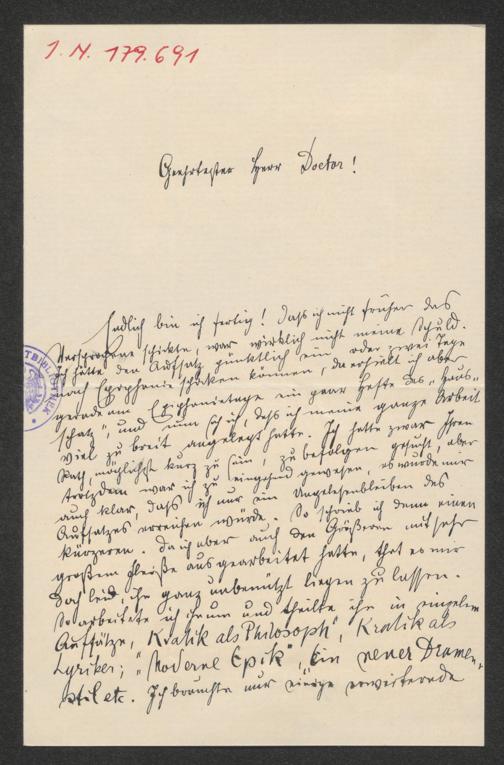 J. N. 179.691
Geehrtester Herr Doctor!
Endlich bin ich fertig! Dass ich nicht früher das
Versprochene schickte, war wirklich nicht meine Schuld.
Ich hätte den Aufsatz pünktlich ein oder zwei Tage
nach Epiphanie schicken können, da erhielt ich aber
gerade am Epiphanietage ein paar Hefte des „Haus-
schatz", und nun sah ich, dass ich meine ganze Arbeit
viel zu breit angelegt hatte. Ich hatte zwar Ihren
Rath, möglichst kurz zu sein, zu befolgen gesucht, aber
trotzdem war ich zu eingehend gewesen, es wurde mir
auch klar, dass ich nur ein Ungelesenbleiben des
Aufsatzes erreichen würde. So schrieb ich denn einen
kürzeren. Da ich aber auch den Größeren mit sehr
großem Fleiße ausgearbeitet hatte, that es mir
doch leid, ihn ganz unbenützt liegen zu lassen.
So arbeitete ich ihn um und theilte ihn in einzelne
Aufsätze, „Kralik als Philosoph", Kralik als
Lyriker; „Moderne Epik", Ein neuer Dramen-
stil etc. Ich brauchte nur einige erweiternde